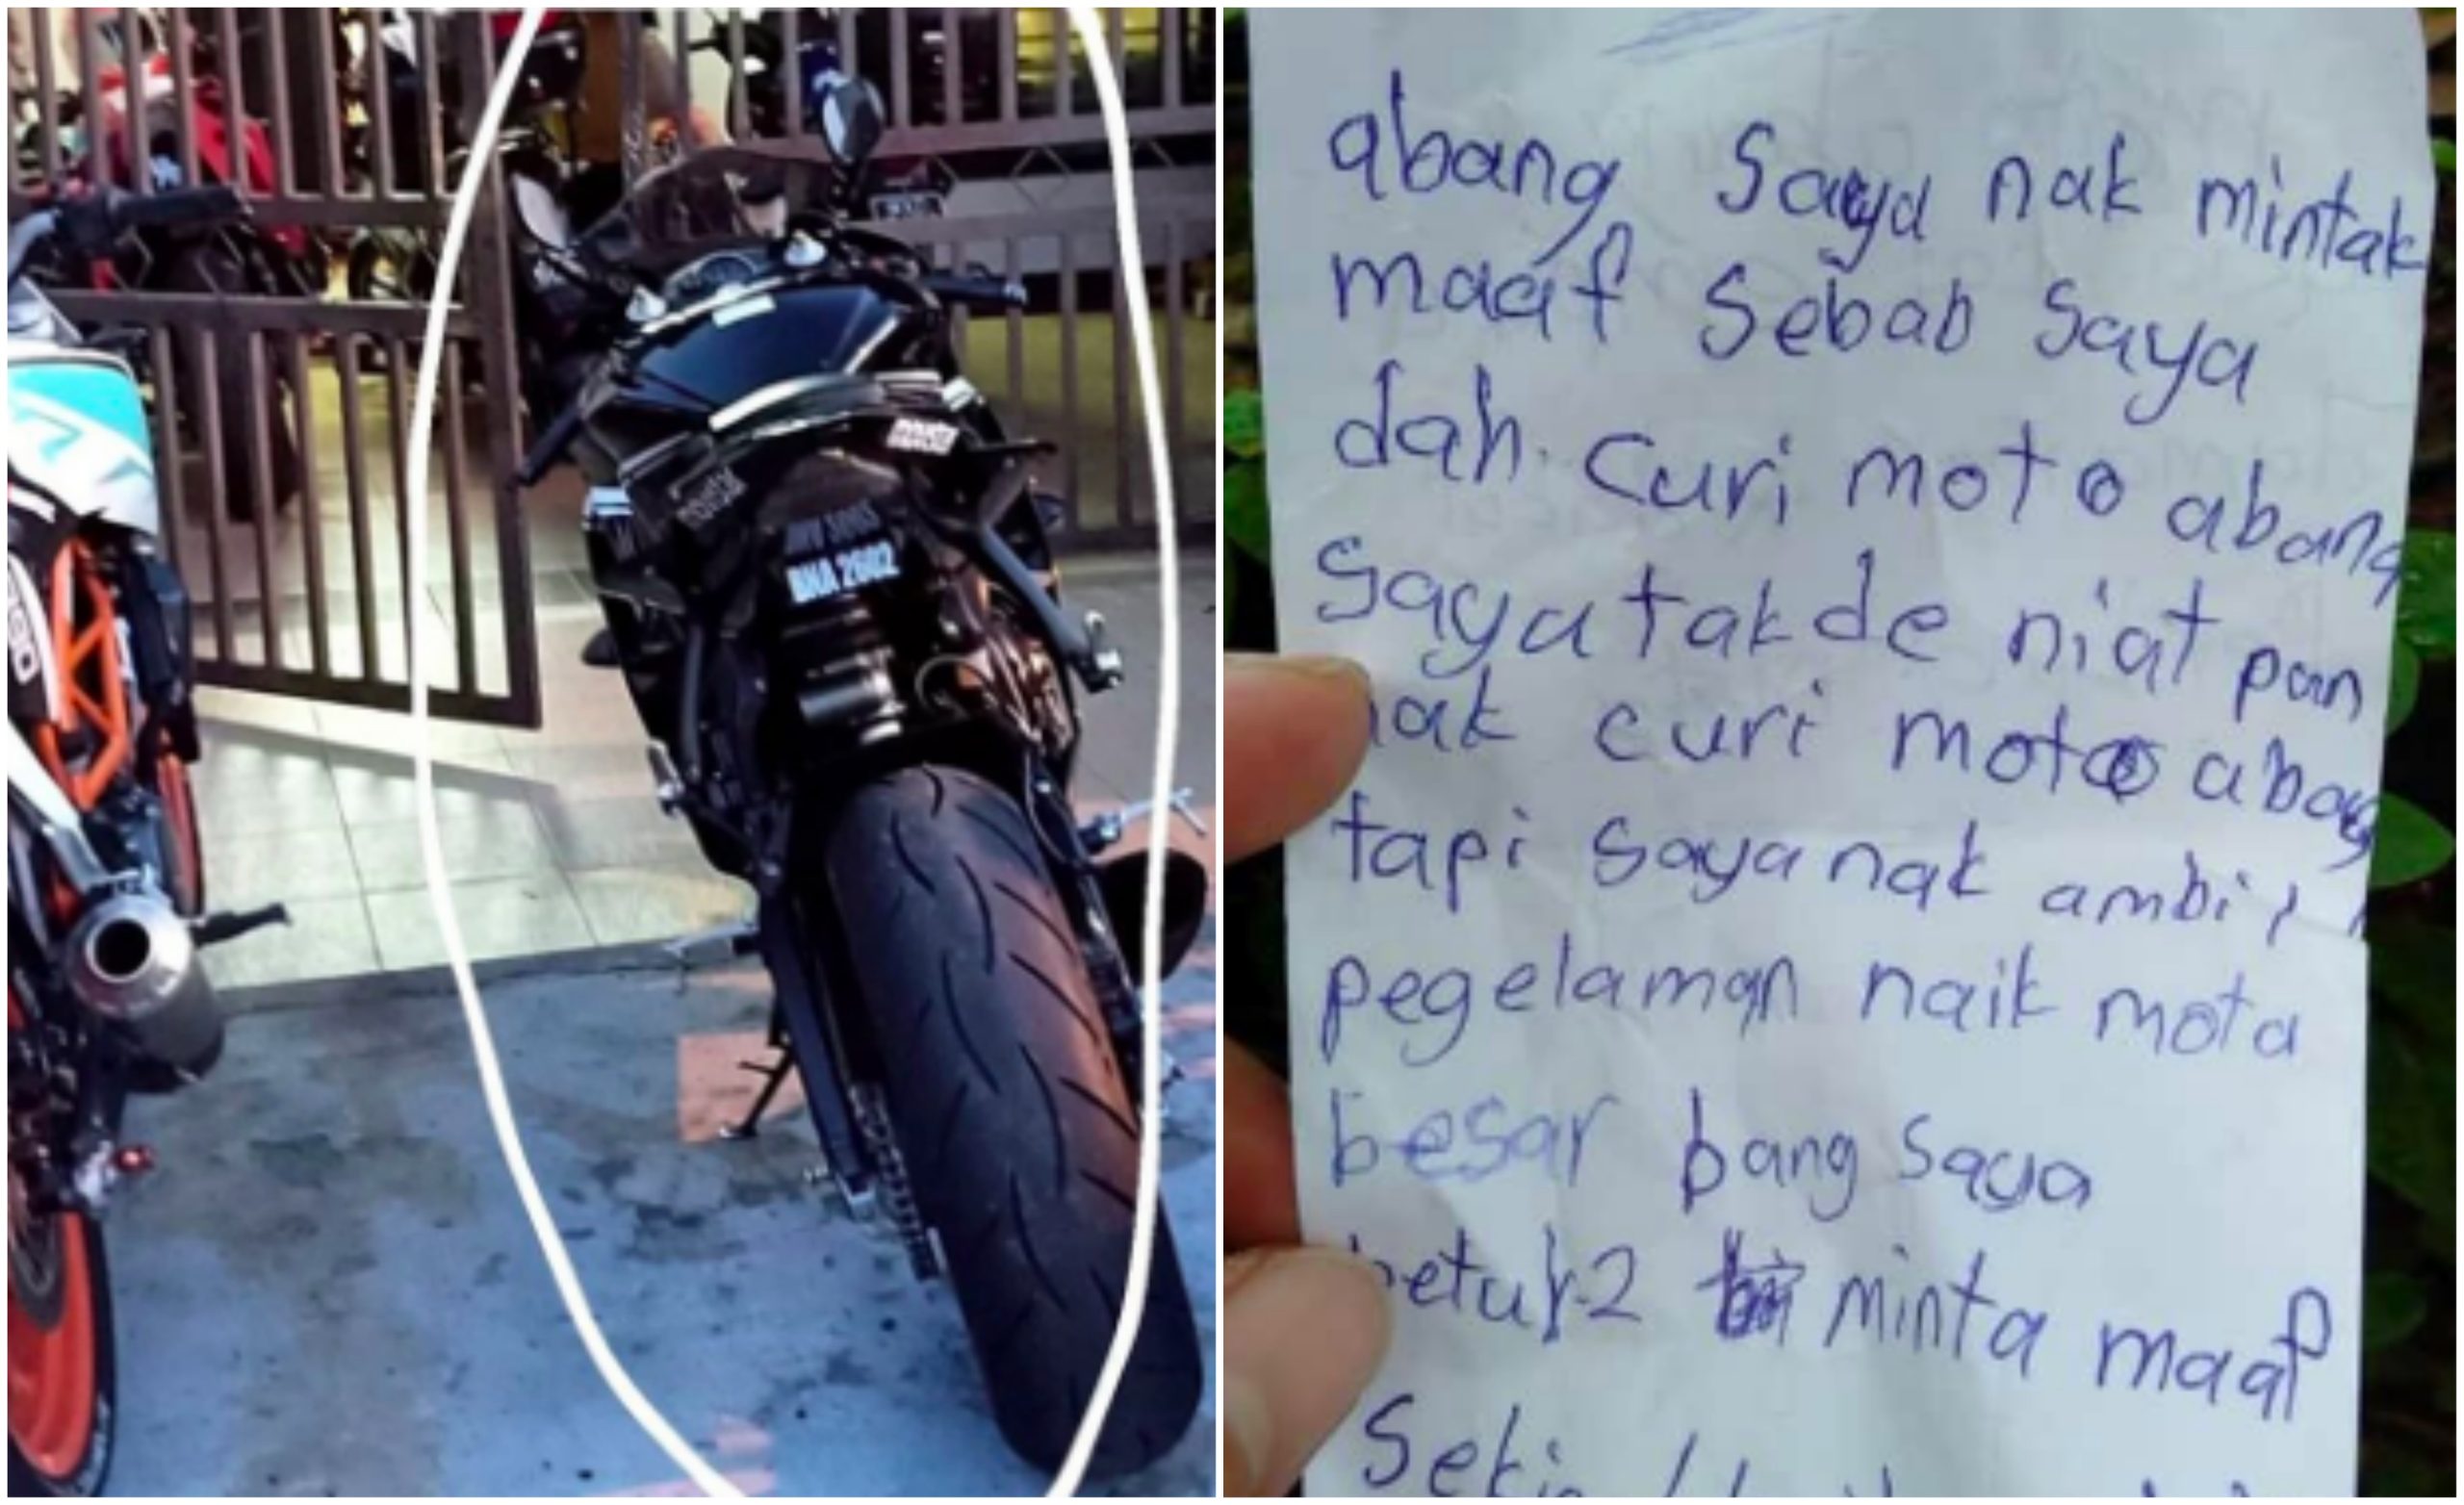 BNA 2602
abang saya nak mintak
maaf sebab saya
dah. curi moto abang
saya takde niat pon
nak curi moto abang
tapi saya nak ambil
pegelaman naik mota
besar bang saya
betul2 minta maaf